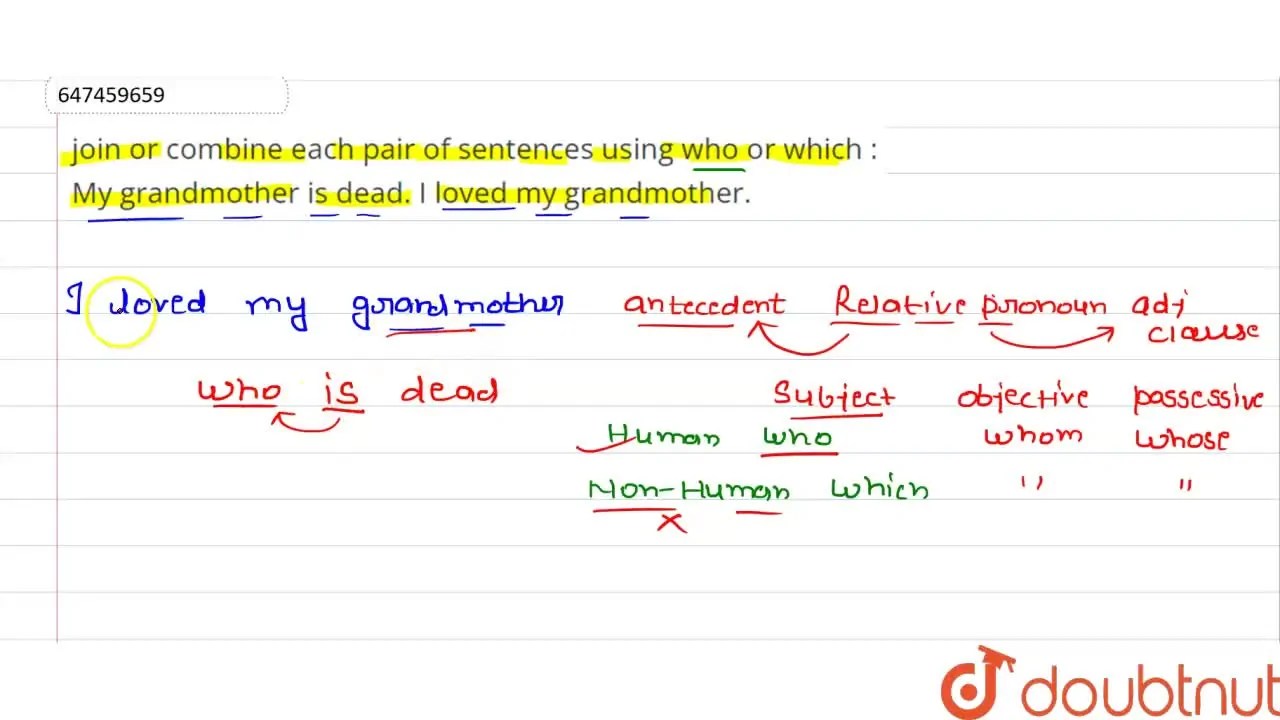 647459659
join or combine each pair of sentences using who or which :
My grandmother is dead. I loved my grandmother.
I loved my grandmother antecedent Relative pronoun adj
clause
who is dead Subject objective possessive
Human who whom whose
Non-Human which " "
x
doubtnut